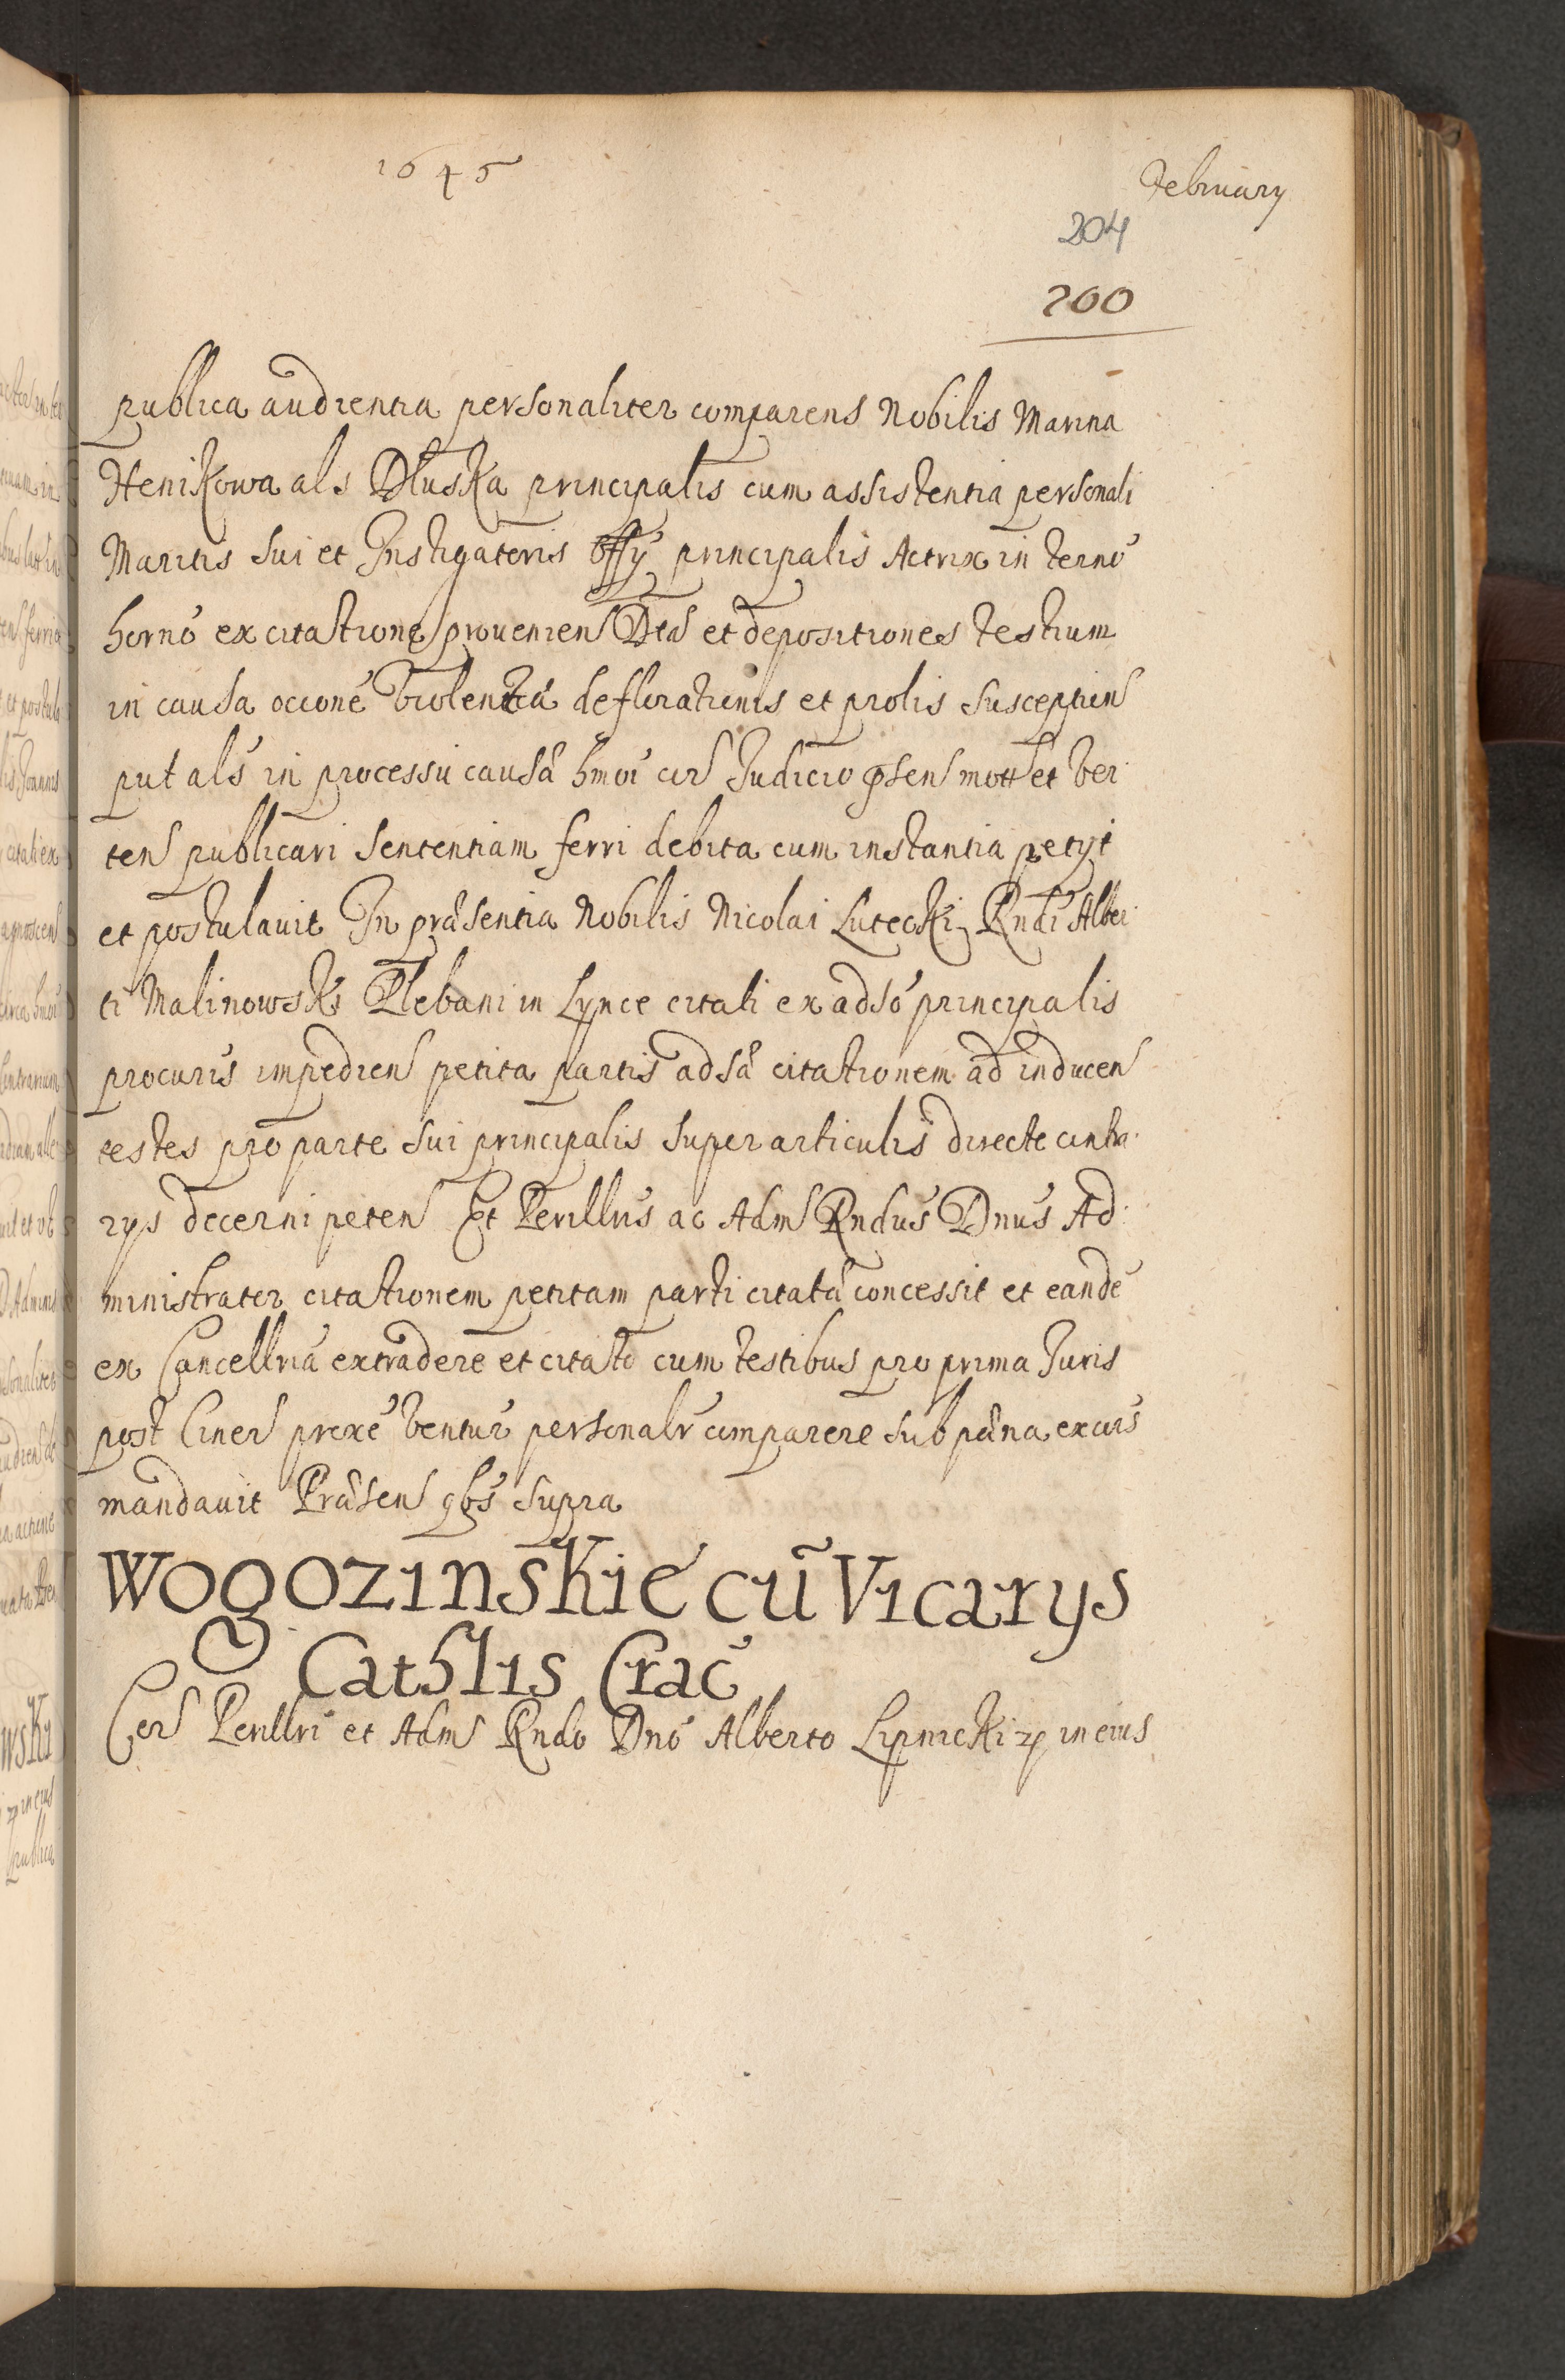 1645
February
204
200
publica audientia personaliter comparens Nobilis Marina
Henikowa als Dłuska principalis cum assistentia personali
Maritis sui et Instigatoris Offÿ principalis Actrix in termō
hornō ex citatione provenien Dta et depositiones testium
in causa occone violenta deflorationis et prolis susception
put als in processu causæ hmoi cor Judicio psen mott et ver
ten publicari sententiam ferri debita cum instantia petyt
et postulavit In præsentia Nobilis Nicolai Lutecki Rndi Alber
ti Malinowski Plebani in Lynce citati ex adso principalis
procuris impedien petita partis adsæ citationem ad inducen
testes pro parte sui principalis super articulis directe contra
rys decerni peten Et Perillris ac Adm Rndus Dnus Ad
ministrator citationem petitam parti citatæ concessit et eande
ex Cancellria extradere et citato cum testibus pro prima Juris
post Ciner proxe ventur personalr comparere sub pæna excois
mandavit Præsen qbs supra
Wogozinskie cū Vicarys
Cathlis Crac
Cor Perillri et Adm Rndo Dno Alberto Lipnicki rp in eius